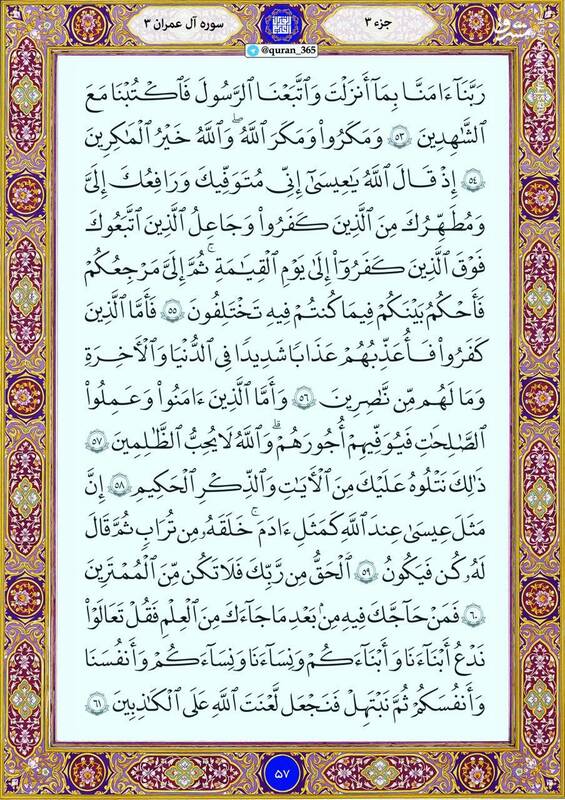 سوره آل عمران ۳
جزء ۳
@quran_365
مشرق
رَبَّنَآ ءَامَنَّا بِمَآ أَنزَلْتَ وَٱتَّبَعْنَا ٱلرَّسُولَ فَٱكْتُبْنَا مَعَ
ٱلشَّٰهِدِينَ ۵۳ وَمَكَرُوا۟ وَمَكَرَ ٱللَّهُ ۖ وَٱللَّهُ خَيْرُ ٱلْمَٰكِرِينَ
۵۴ إِذْ قَالَ ٱللَّهُ يَٰعِيسَىٰٓ إِنِّى مُتَوَفِّيكَ وَرَافِعُكَ إِلَىَّ
وَمُطَهِّرُكَ مِنَ ٱلَّذِينَ كَفَرُوا۟ وَجَاعِلُ ٱلَّذِينَ ٱتَّبَعُوكَ
فَوْقَ ٱلَّذِينَ كَفَرُوٓا۟ إِلَىٰ يَوْمِ ٱلْقِيَٰمَةِ ۖ ثُمَّ إِلَىَّ مَرْجِعُكُمْ
فَأَحْكُمُ بَيْنَكُمْ فِيمَا كُنتُمْ فِيهِ تَخْتَلِفُونَ ۵۵ فَأَمَّا ٱلَّذِينَ
كَفَرُوا۟ فَأُعَذِّبُهُمْ عَذَابًا شَدِيدًا فِى ٱلدُّنْيَا وَٱلْءَاخِرَةِ
وَمَا لَهُم مِّن نَّٰصِرِينَ ۵۶ وَأَمَّا ٱلَّذِينَ ءَامَنُوا۟ وَعَمِلُوا۟
ٱلصَّٰلِحَٰتِ فَيُوَفِّيهِمْ أُجُورَهُمْ ۗ وَٱللَّهُ لَا يُحِبُّ ٱلظَّٰلِمِينَ ۵۷
ذَٰلِكَ نَتْلُوهُ عَلَيْكَ مِنَ ٱلْءَايَٰتِ وَٱلذِّكْرِ ٱلْحَكِيمِ ۵۸ إِنَّ
مَثَلَ عِيسَىٰ عِندَ ٱللَّهِ كَمَثَلِ ءَادَمَ ۖ خَلَقَهُۥ مِن تُرَابٍ ثُمَّ قَالَ
لَهُۥ كُن فَيَكُونُ ۵۹ ٱلْحَقُّ مِن رَّبِّكَ فَلَا تَكُن مِّنَ ٱلْمُمْتَرِينَ
۶۰ فَمَنْ حَآجَّكَ فِيهِ مِنۢ بَعْدِ مَا جَآءَكَ مِنَ ٱلْعِلْمِ فَقُلْ تَعَالَوْا۟
نَدْعُ أَبْنَآءَنَا وَأَبْنَآءَكُمْ وَنِسَآءَنَا وَنِسَآءَكُمْ وَأَنفُسَنَا
وَأَنفُسَكُمْ ثُمَّ نَبْتَهِلْ فَنَجْعَل لَّعْنَتَ ٱللَّهِ عَلَى ٱلْكَٰذِبِينَ ۶۱
۵۷